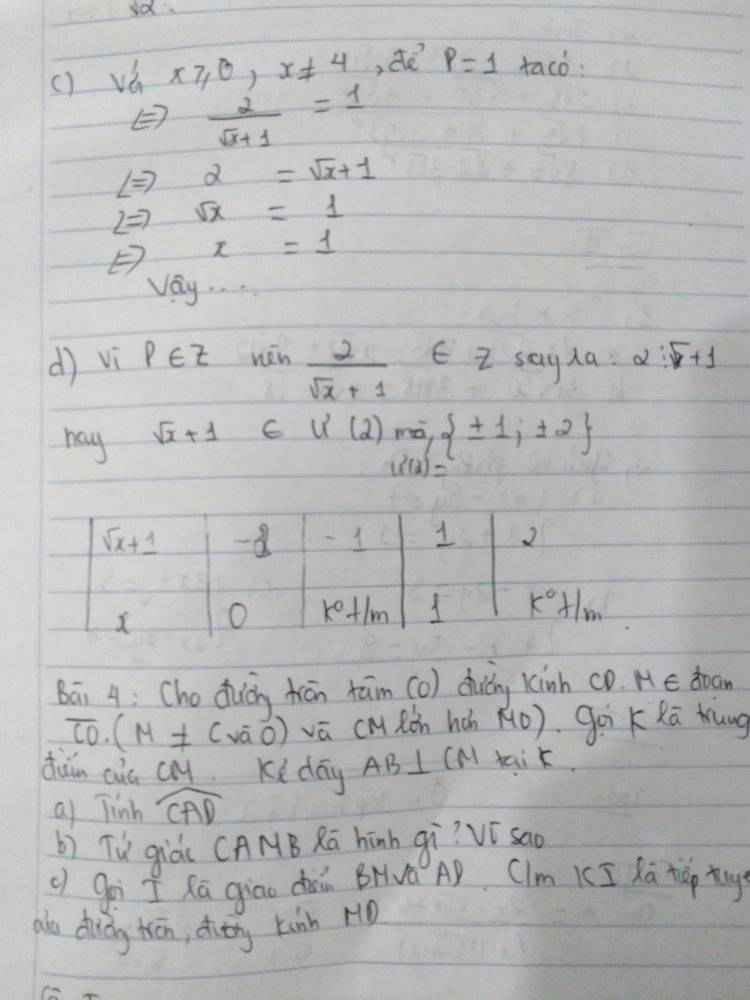 √2.
c) Với x ≥ 0, x ≠ 4, để P = 1 ta có:
<=> 2/(√x+1) = 1
<=> 2 = √x+1
<=> √x = 1
<=> x = 1
Vậy....
d) Vì P ∈ Z nên 2/(√x+1) ∈ Z suy ra: 2 ⋮ √x+1
hay √x+1 ∈ Ư(2) mà Ư(2)= {±1; ±2}
√x+1 | -2 | -1 | 1 | 2
x | 0 | K° t/m | 1 | K° t/m.
Bài 4: Cho đường tròn tâm (O) đường kính CD. M ∈ đoạn
CO. (M ≠ C và O) và CM lớn hơn MO). Gọi K là trung
điểm của CM. Kẻ dây AB ⊥ CM tại K.
a) Tính CAD
b) Tứ giác CAMB là hình gì? Vì sao
c) Gọi I là giao điểm BM và AD. C/m KI là tiếp tuyế
của đường tròn, đường kính MD